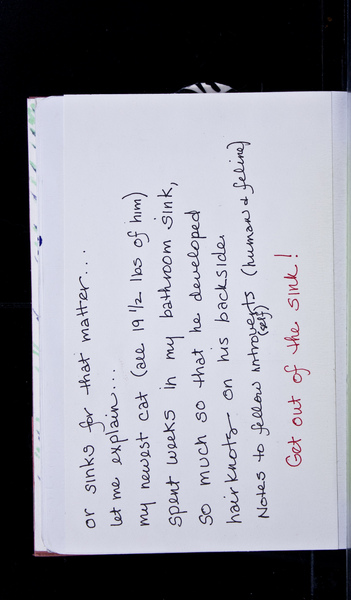 or sinks for that matter...
let me explain...
my newest cat (all 19 1/2 lbs of him)
spent weeks in my bathroom sink,
so much so that he developed
hair knots on his backside.
Notes to fellow introverts (human & feline)
(self)
Get out of the sink!